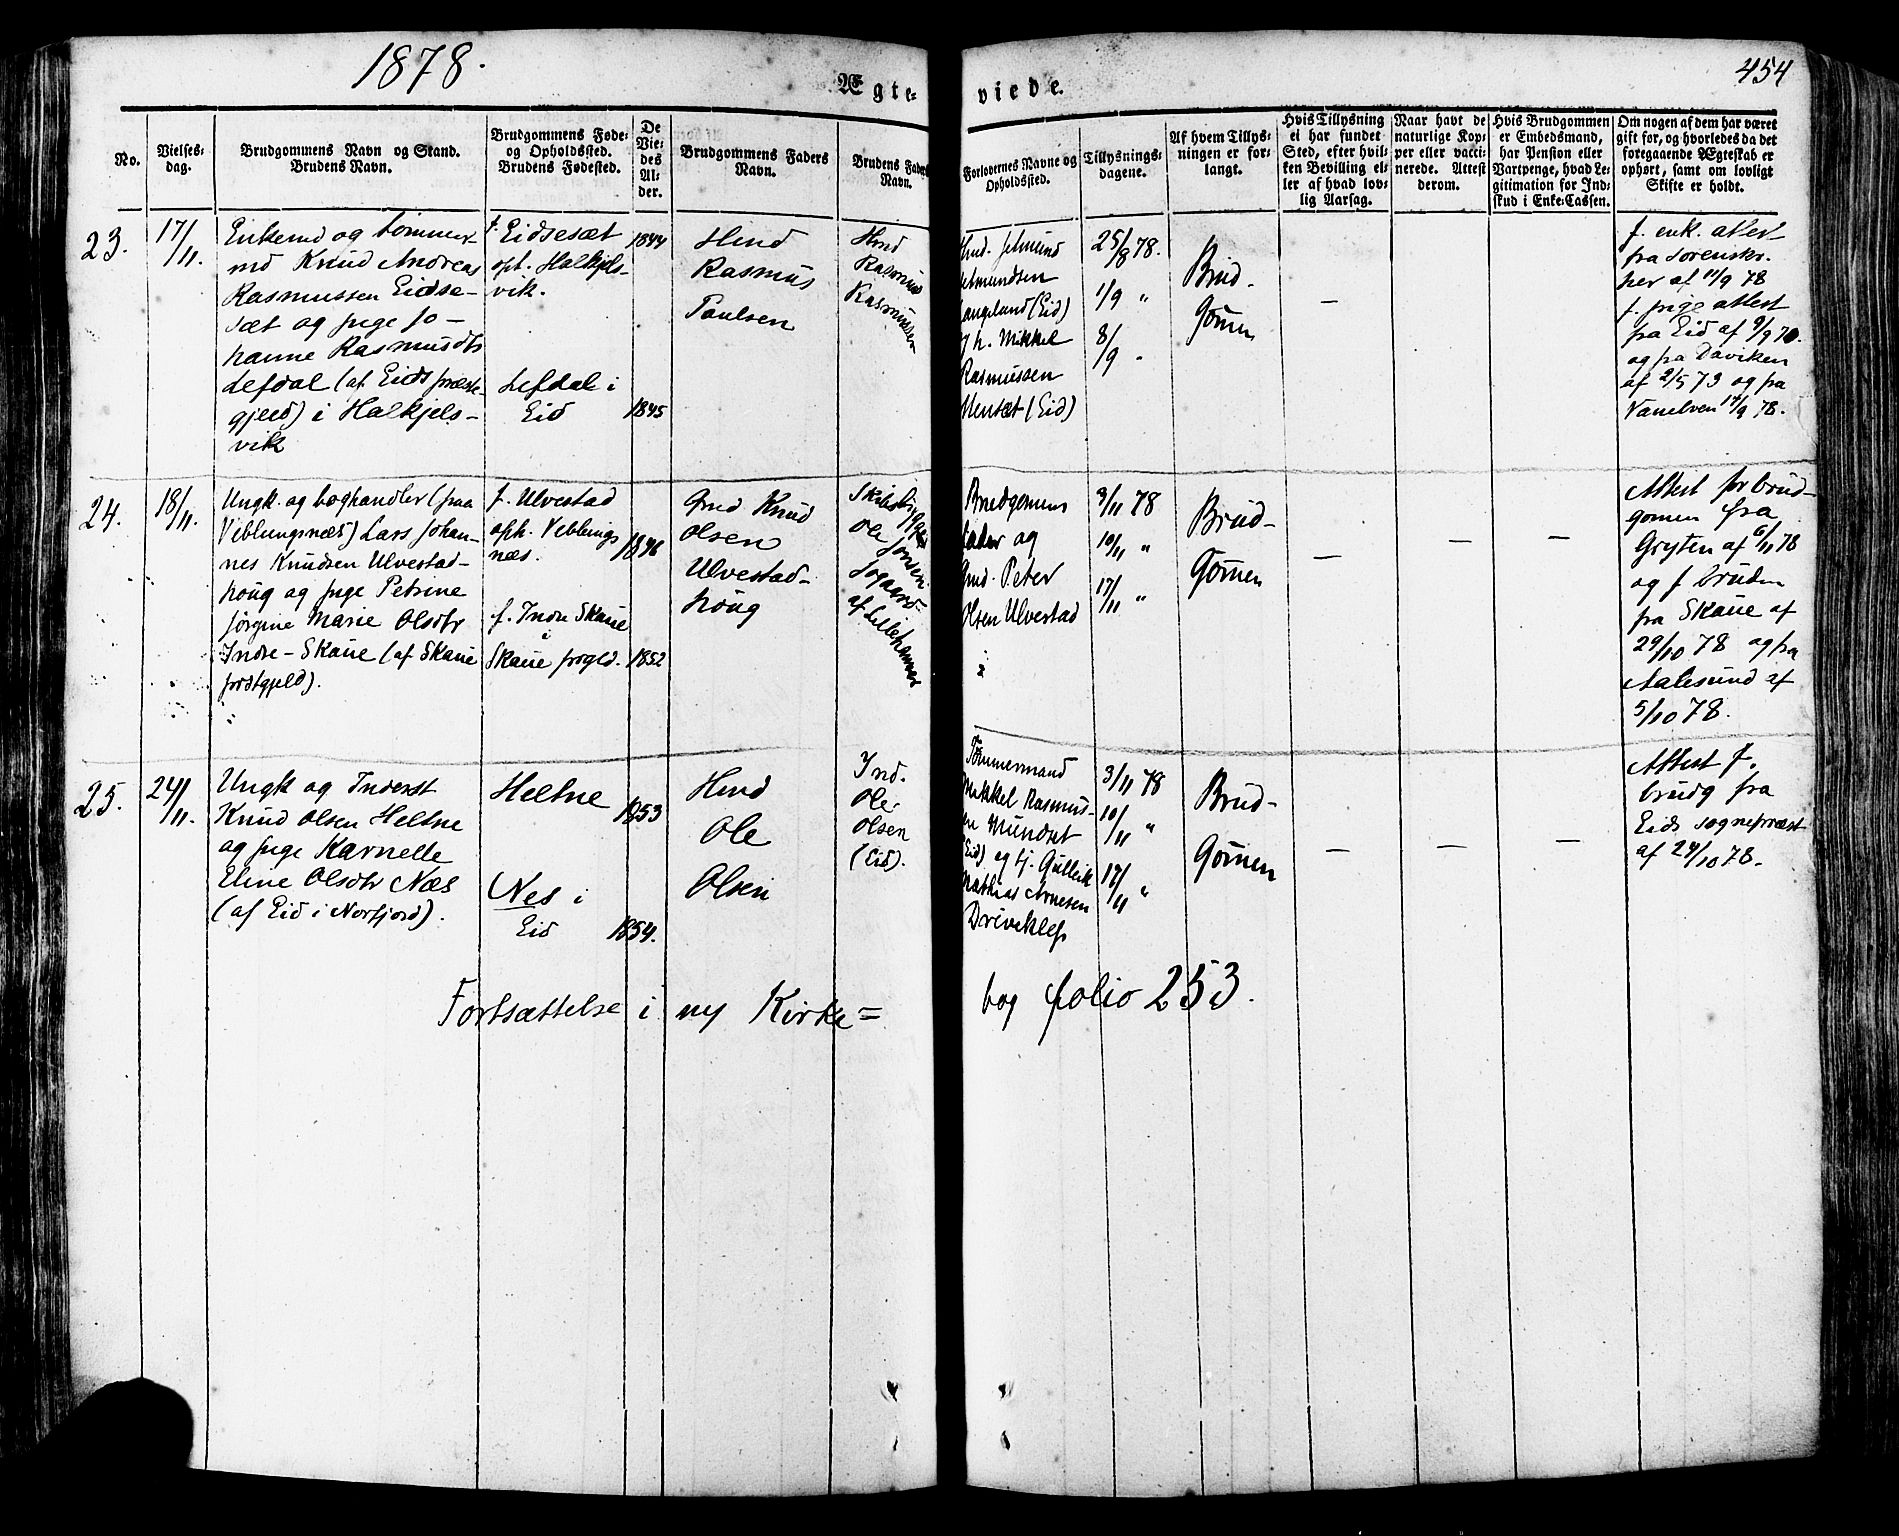 1878.
454
Ægte-
viede.
No.
Vielses-
dag.
Brudgommens Navn og Stand.
Brudens Navn.
Brudgommens Føde-
og Opholdssted.
Brudens Fødested.
De
Vie-
des
Al-
der.
Brudgommens Faders
Navn.
Brudens Faders
Navn.
Forlovernes Navne og
Opholdssted.
Tillysnings-
dagene.
Af hvem Tillys-
ningen er for-
langt.
Hvis Tillysning
ei har fundet
Sted, efter hvil-
ken Bevilling el-
ler af hvad lov-
lig Aarsag.
Naar havt de
naturlige Kop-
per eller vacci-
nerede. Attest
derom.
Hvis Brudgommen
er Embedsmand,
har Pension eller
Vartpenge, hvad Le-
gitimation for Ind-
skud i Enke-Cassen.
Om nogen af dem har været
gift før, og hvorledes da det
foregaaende Ægteskab er
ophørt, samt om lovligt
Skifte er holdt.
23.
17/11.
Enkemd og tømmer-
md Knud Andreas
Rasmussen Eidse-
sæt og pige Jo-
hanne Rasmusdtr
Lefdal (af Eids præste-
gjeld) i Halkjels-
vik
f. Eidsesæt
oph. Halkjels-
vik.
Lefdal i
Eid
1844
1845
Hmd
Rasmus
Paulsen
Hmd
Rasmus
Rasmussen
Hmd. Jetmund
Jetmundsen
Langeland (Eid)
og h. Mikkel
Rasmussen
(Eid)
25/8 78.
1/9 "
8/9 "
Brud-
Gomen
—
f. enk. attest
fra Sorenskr.
her af 11/9 78
f. pige attest
fra Eid af 9/9 78.
og fra Daviken
af 2/5 73 og fra
Vanelven 14/9 78.
24.
18/11.
Ungk. og boghandler (paa
Veblungsnæs) Lars Johan-
nes Knudsen Ulvestad-
houg og pige Petrine
Jørgine Marie Olsdtr
Indre-Skaue (af Skaue
præstgjeld).
f. Ulvestad
oph. Veblungs
næs.
f. Indre Skaue
i
Skaue prgld.
1846
1852
Gmd Knud
Olsen
Ulvestad-
houg
Skibsbygger
Ole Jonsen
af Lillehammer
Brudgomens
fader og
Gmd. Peter
Olsen Ulvestad
3/11 78
10/11 "
17/11 "
Brud-
Gomen
—
—
—
Attest for brud-
gomen fra
Gryten af 6/11 78
og f. bruden
fra Skaue af
29/10 78 og fra
Aalesund af
5/10 78.
25.
24/11.
Ungk og Inderst
Knud Olsen Heltne
og pige Karnelle
Eline Olsdtr Næs
(af Eid i Norfjord).
Heltne
Nes i
Eid
1853
1854.
Hmd
Ole
Olsen
Ind.
Ole
Olsen
(Eid).
Tømmermand
Mikkel Rasmus-
en Mundset
(Eid) og tj. Gulleik
Mathias Arnesen
Driveklep
3/11 78
10/11 "
17/11 "
Brud-
Gomen
—
—
—
Attest f.
brudg fra
Eids sognepræst
af 24/10 78.
Fortsættelse i ny Kirke=
bog folio 253.